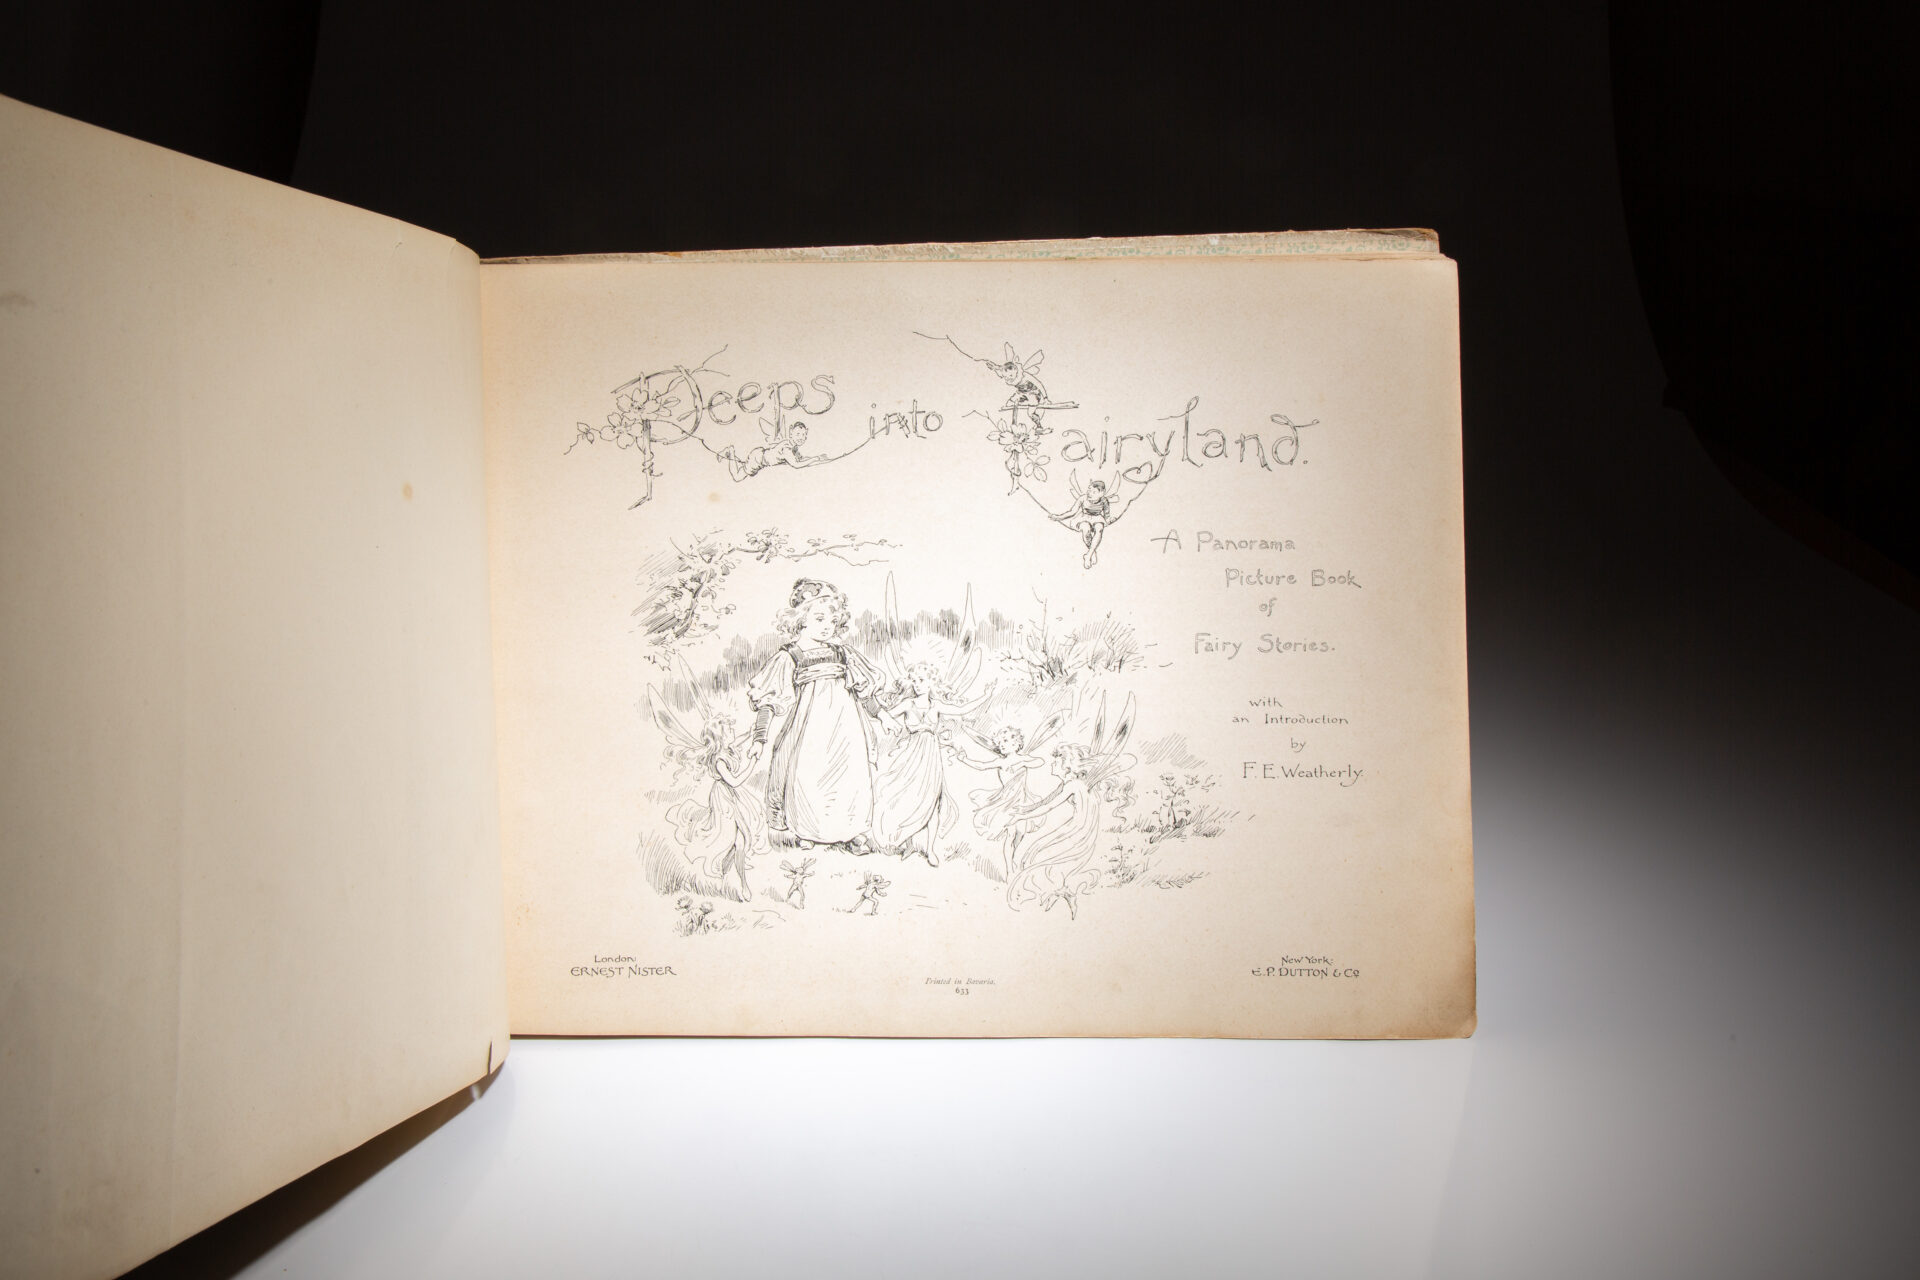 Peeps into Fairyland.
A Panorama
Picture Book
of
Fairy Stories.
with
an Introduction
by
F. E. Weatherly.
London:
ERNEST NISTER
Printed in Bavaria.
633
New York:
E. P. DUTTON & Co